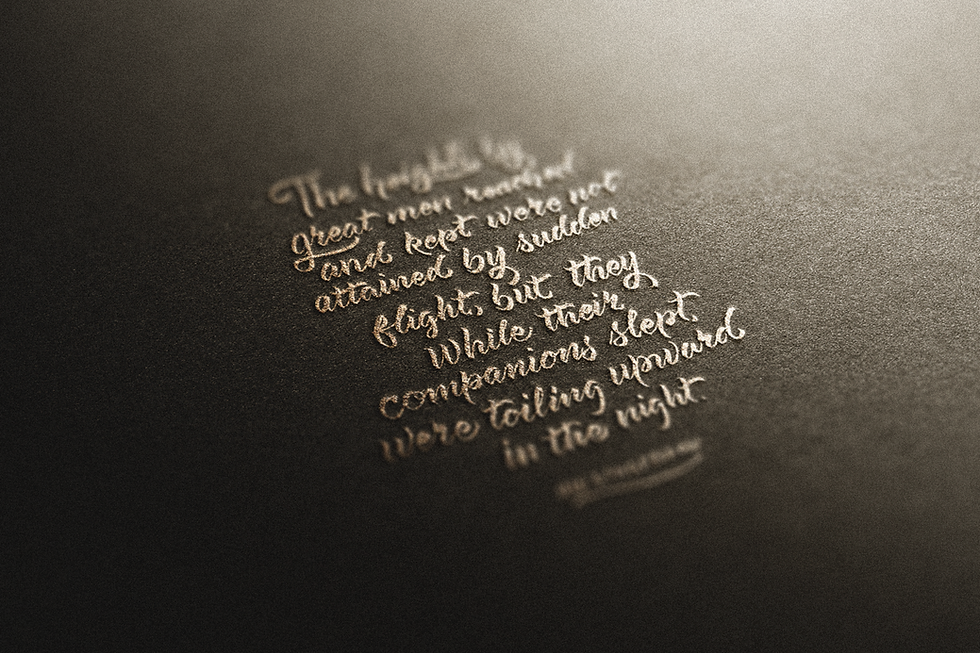 The heights by
great men reached
and kept were not
attained by sudden
flight, but they
While their
companions slept,
were toiling upward
in the night.